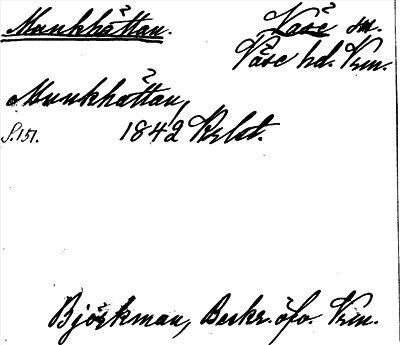 Munkhåttan. Väse sn.
Väse hd. Vrm.
Munkhåttan,
S. 151. 1842 Relst.
Björkman, Beskr. öfv. Vrm.